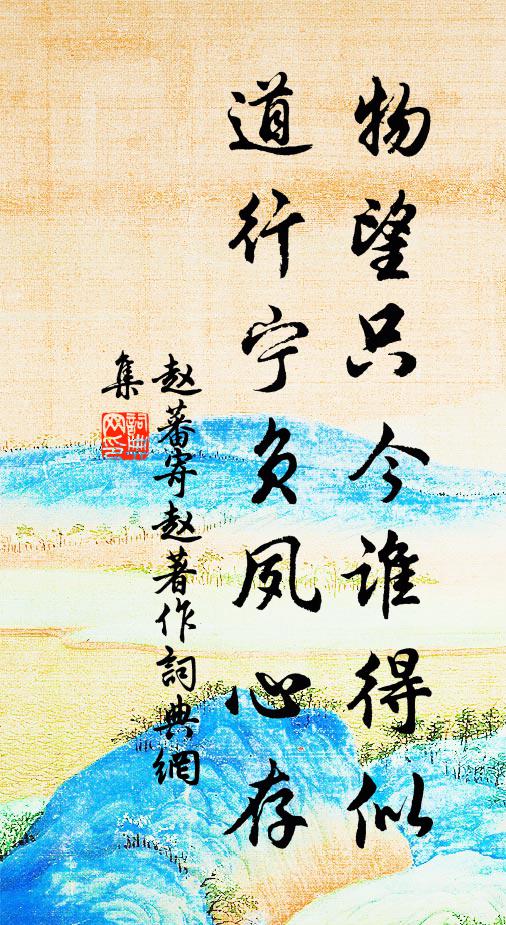 物望只今谁得似
道行宁负夙心存
赵蕃寄赵著作词典網
集
詞典
网印